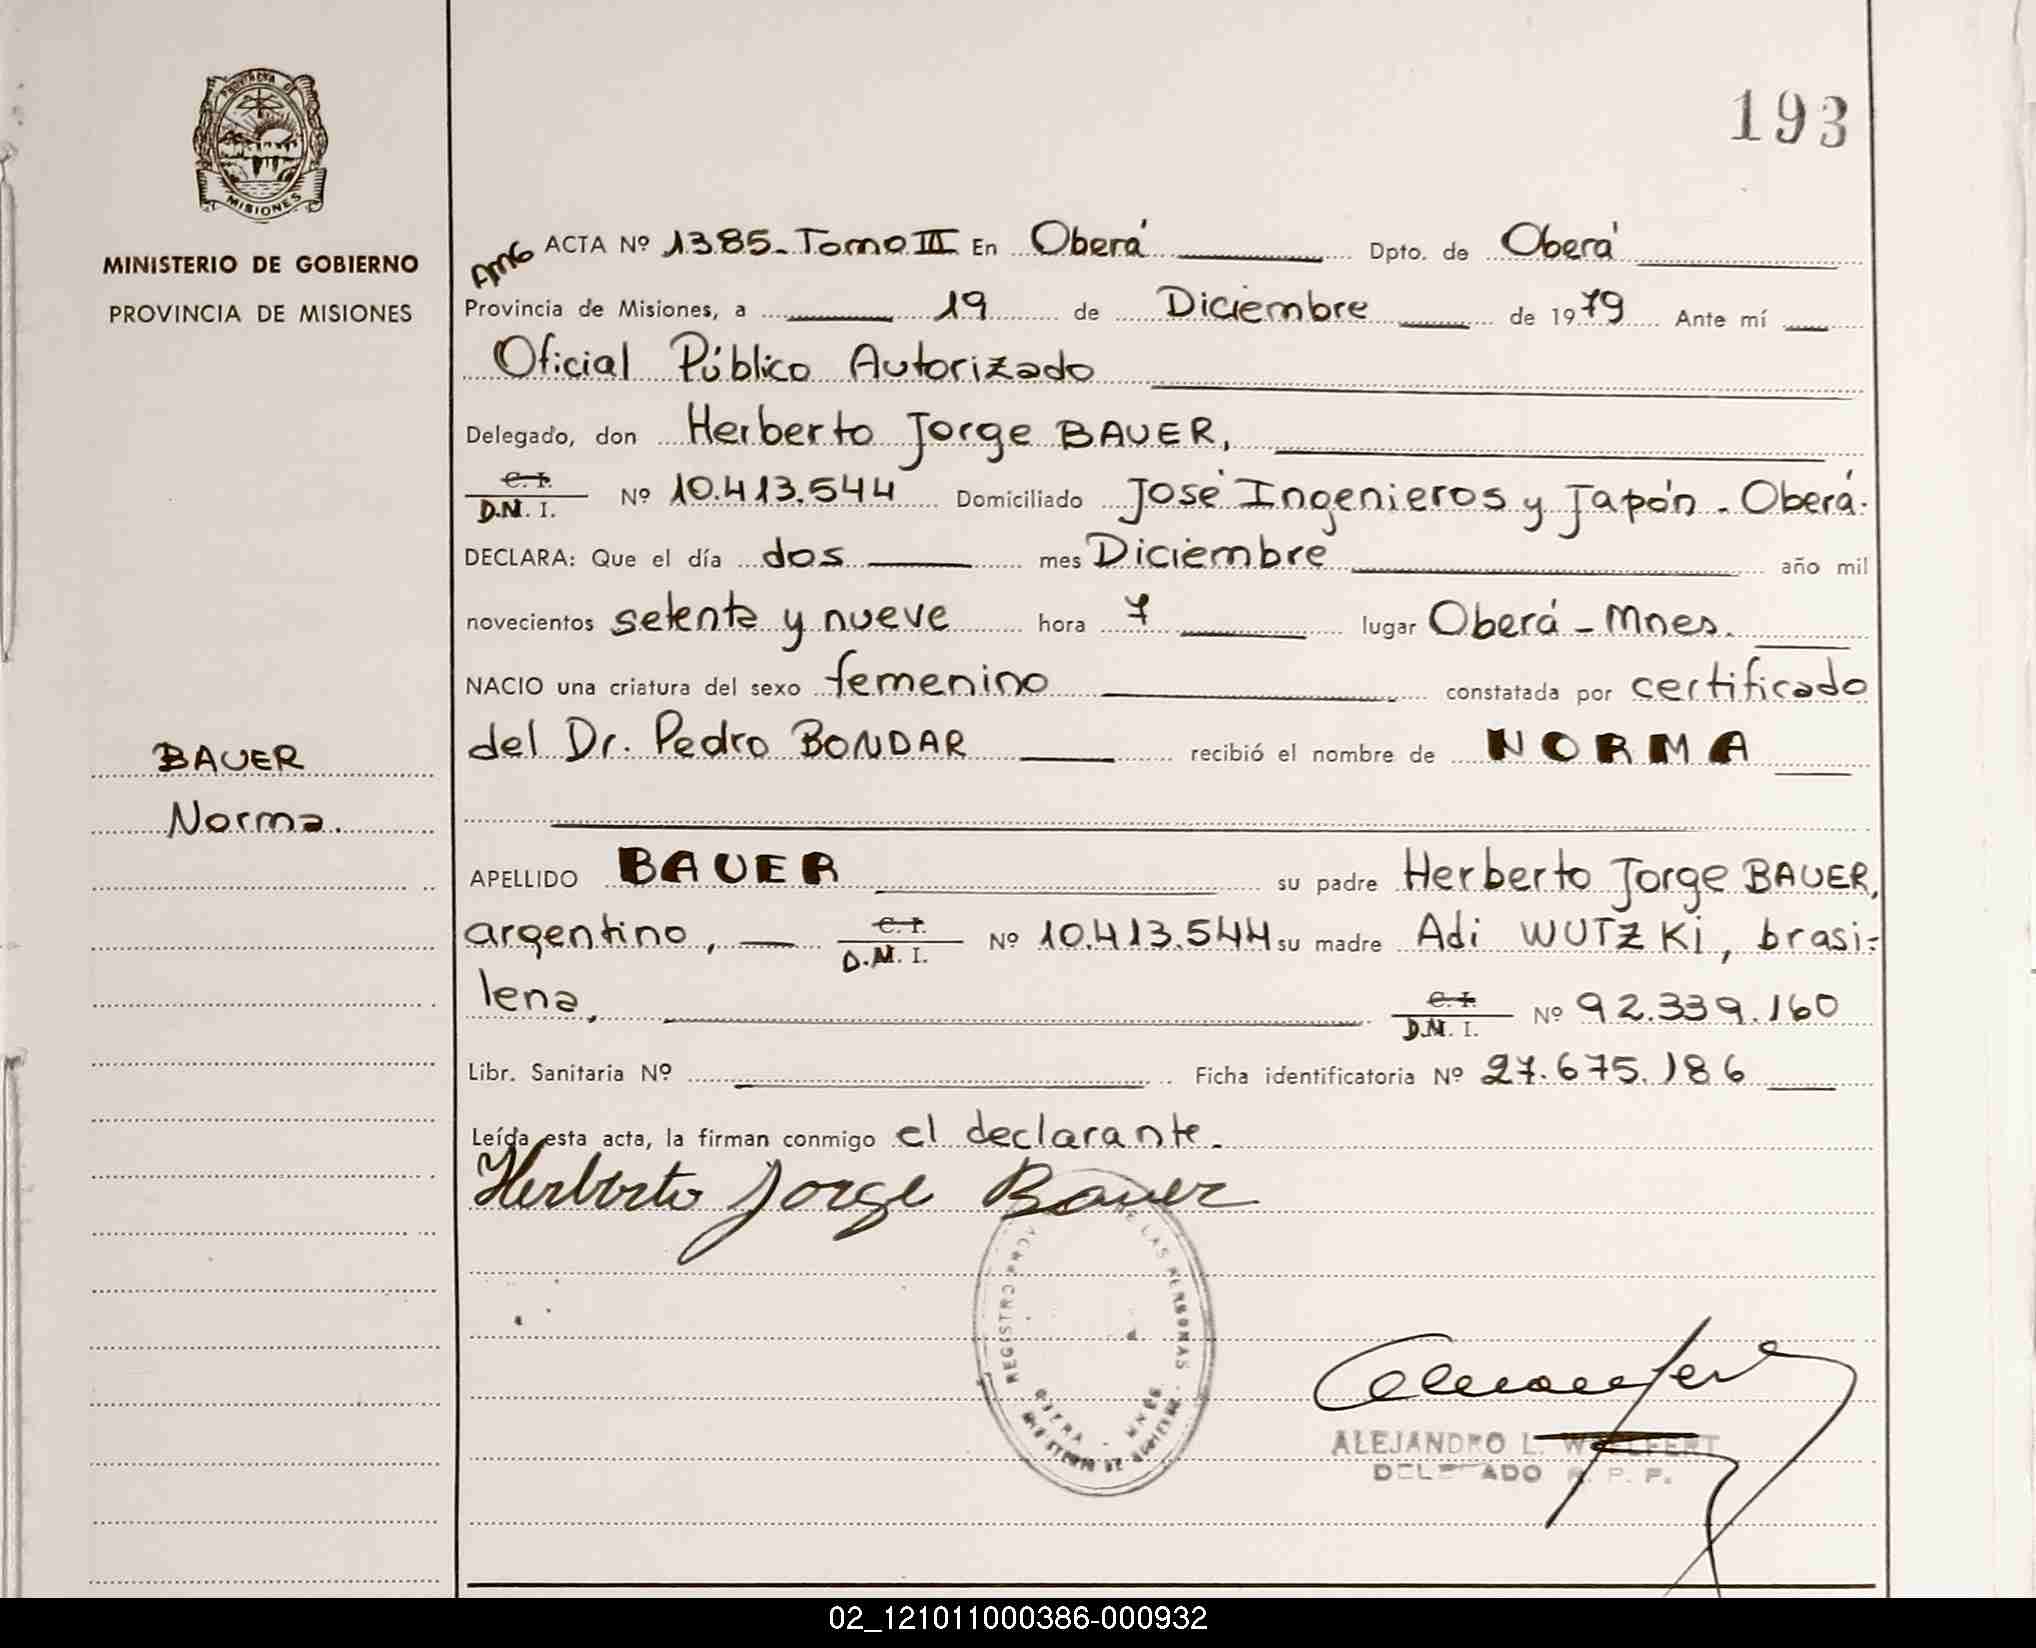 PROVINCIA DE
MISIONES
MINISTERIO DE GOBIERNO
PROVINCIA DE MISIONES
BAUER
Norma.
193
AMG ACTA Nº 1385-Tomo III En Oberá Dpto. de Oberá
Provincia de Misiones, a 19 de Diciembre de 1979 Ante mí
Oficial Público Autorizado
Delegado, don Herberto Jorge BAUER,
C. I.
D.N. I. Nº 10.413.544 Domiciliado José Ingenieros y Japón - Oberá.
DECLARA: Que el día dos mes Diciembre año mil
novecientos setenta y nueve hora 7 lugar Oberá - Mnes.
NACIO una criatura del sexo femenino constatada por certificado
del Dr. Pedro BONDAR recibió el nombre de NORMA
APELLIDO BAUER su padre Herberto Jorge BAUER,
argentino, C. I.
D.N. I. Nº 10.413.544 su madre Adi WUTZKI, brasi-
lena, C. I.
D.N. I. Nº 92.339.160
Libr. Sanitaria Nº Ficha identificatoria Nº 27.675.186
Leída esta acta, la firman conmigo el declarante.
Herberto Jorge Bauer
REGISTRO PROV DE LAS PERSONAS
OBERA - MNES
MINISTERIO DE GOBIERNO
ALEJANDRO L. WOLFERT
DELEGADO R. P. P.
02_121011000386-000932